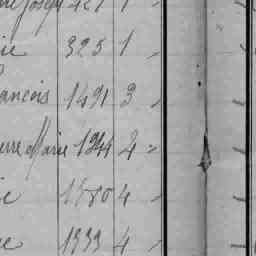 Joseph 421 1
ie 325 1
rancois 1491 3
erre Marie 1244 4
ie 1880 4
ne 1933 4